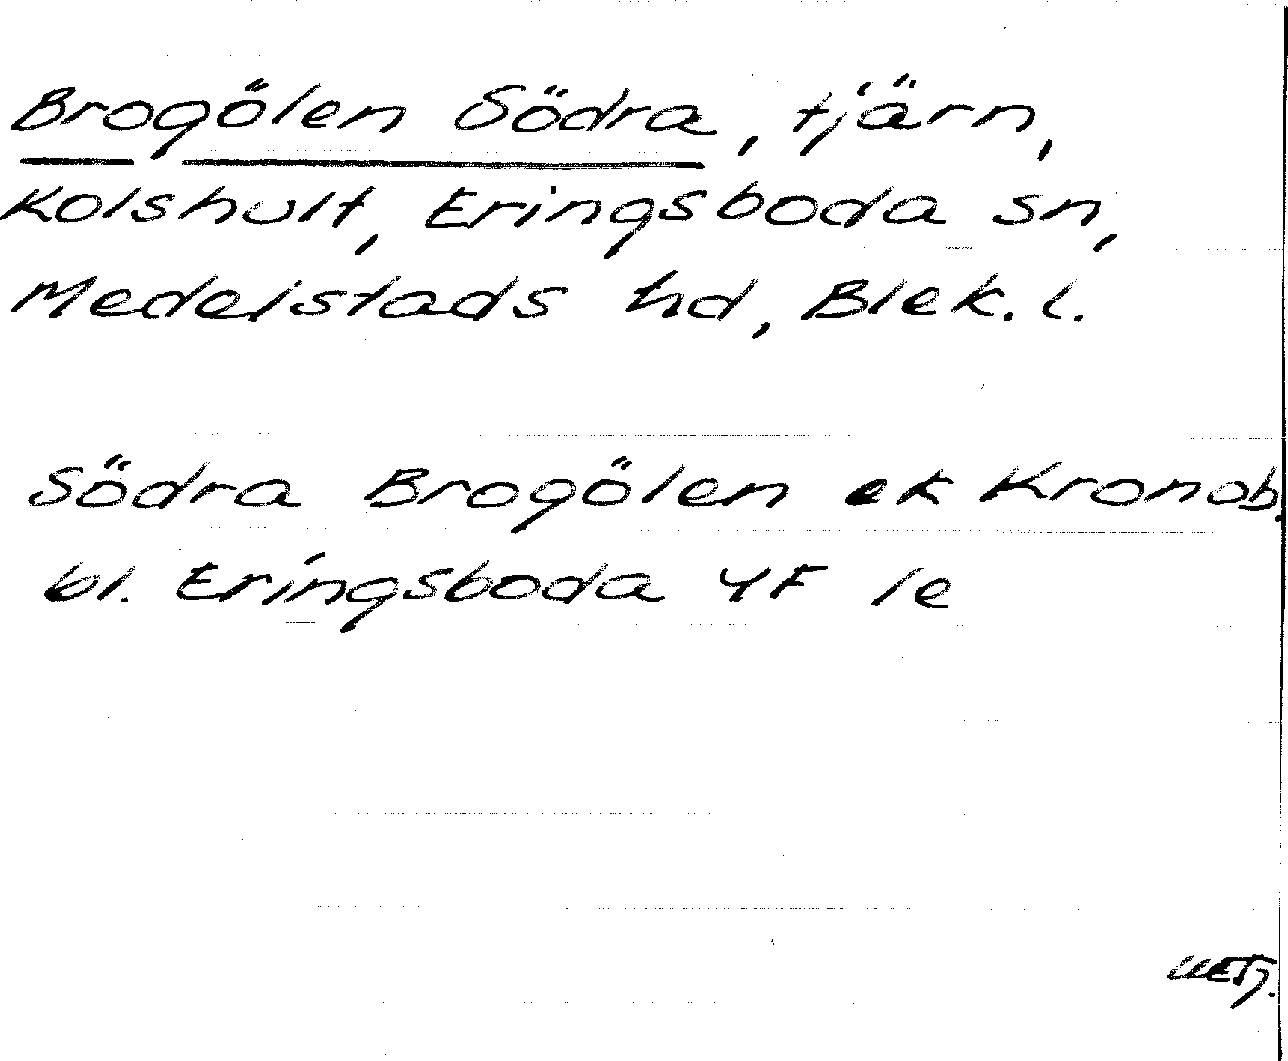 Brogölen Södra, tjärn,
Kolshult, Eringsboda sn,
Medelstads hd, Blek. l.
Södra Brogölen ek Kronob.
bl. Eringsboda 4F le